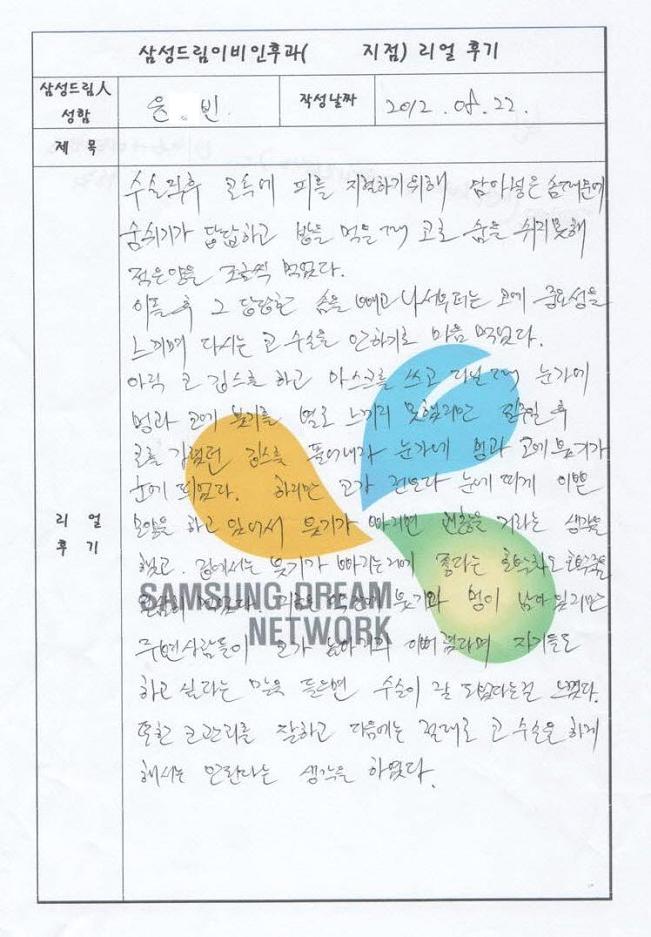 삼성드림이비인후과( 지점) 리얼 후기
삼성드림人
성함
윤 빈
작성날짜
2012. 08. 22.
제 목
리 얼
후 기
수술직후 코속에 피를 지혈하기위해 담아넣은 솜때문에
숨쉬기가 답답하고 밥을 먹을때 코로 숨을 쉬지못해
적은양을 조금씩 먹었다.
이틀 후 그 답답한 솜을 빼고 나서부터는 코에 중요성을
느끼며 다시는 코 수술을 안하기로 마음 먹었다.
아직 코 깁스를 하고 마스크를 쓰고 다닐때 눈가에
멍과 코에 붓기를 별로 느끼지 못했지만 일주일 후
코를 감쌌던 깁스를 풀어내자 눈가에 멍과 코에 붓기가
눈에 띄었다. 하지만 코가 전보다 눈에 띄게 이쁜
모양을 하고 있어서 붓기가 빠지면 괜찮을 거라는 생각을
했고. 집에서는 붓기가 빠지는거에 좋다는 호박차도 호박죽을
SAMSUNG DREAM
NETWORK
먹었다 붓기와 멍이 남아 있지만
주변사람들이 코가 높아지고 이뻐졌다며 자기들도
하고 싶다는 말을 들으면 수술이 잘 되었다는걸 느꼈다.
또한 코관리를 잘하고 다음에는 절대로 코 수술을 하게
해서는 안된다는 생각을 하였다.